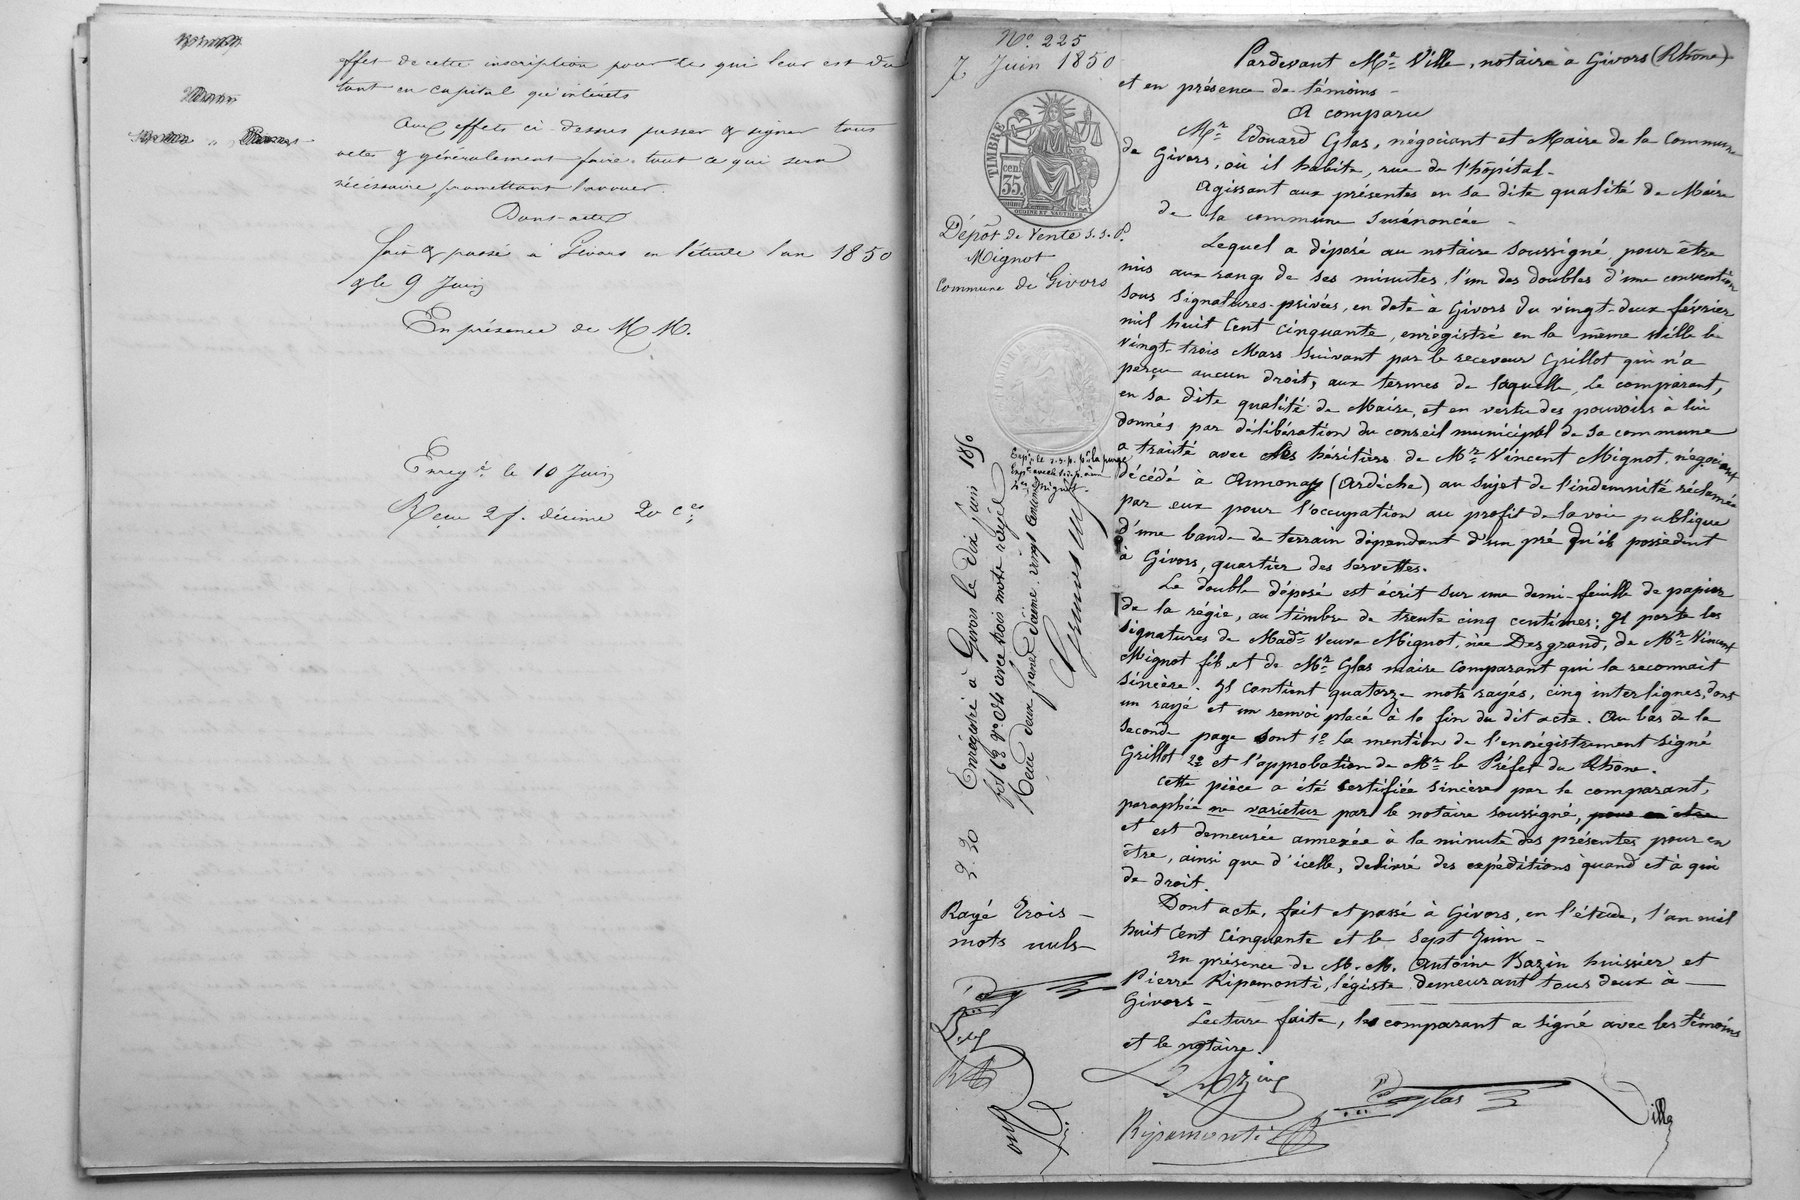 effet de cette inscription pour ce qui leur est du
tant en capital qu'intérets
Aux effets ci-dessus passer & signer tous
actes & généralement faire tout ce qui sera
nécessaire promettant l'avouer.
Dont-acte
Fait & passé à Givors en l'étude l'an 1850
& le 9 Juin
En présence de M M.
Enregé le 10 Juin
Reçu 2 f. décime 20 ces
No. 225
7 Juin 1850
TIMBRE
35 cen
Dépôt de Vente s.s.p.
Mignot
Commune de Givors
Enregistré à Givors le dix Juin 1850
fol 68 vo. c4 avec trois mots rayés
Reçu deux francs décime vingt centimes
2. 20
Rayé trois -
mots nuls -
Pardevant Me. Ville, notaire à Givors (Rhône)
et en présence de témoins -
A comparu
Mr. Edouard Glas, négociant et Maire de la Commune
de Givors, où il habite, rue de l'hôpital -
Agissant aux présentes en sa dite qualité de Maire
de la commune susénoncée -
Lequel a déposé au notaire soussigné pour être
mis aux rang de ses minutes, l'un des doubles d'une convention
sous signatures-privées, en date à Givors du vingt-deux février
mil huit cent cinquante, enrégistré en la même ville le
vingt-trois Mars suivant par le receveur Grillot qui n'a
perçu aucun droit, aux termes de laquelle, le comparant,
en sa dite qualité de Maire, et en vertu des pouvoirs à lui
donnés par délibération du conseil municipal de sa commune
a traité avec les héritiers de Mr. Vincent Mignot, négociant
décédé à Annonay (Ardèche) au sujet de l'indemnité réclamée
par eux pour l'occupation au profit de la voie publique
d'une bande de terrain dépendant d'un pré qu'ils possèdent
à Givors, quartier des servettes.
Le double déposé est écrit sur une demi-feuille de papier
de la régie, au timbre de trente cinq centimes; Il porte les
signatures de Made. Veuve Mignot, née Desgrand, de Mr. Vincent
Mignot fils et de Mr. Glas maire comparant qui la reconnait
sincère. Il contient quatorze mots rayés, cinq interlignes, dont
un rayé et un renvoi placé à la fin du dit acte. Au bas de la
seconde page sont 1o la mention de l'enrégistrement signé
Grillot 2o et l'approbation de Mr. le Préfet du Rhône.
Cette pièce a été certifiée sincère par le comparant,
paraphée ne varietur par le notaire soussigné, pour en être
et est demeurée annexée à la minute des présentes pour en
être, ainsi que d'icelle, délivré des expéditions quand et à qui
de droit.
Dont acte, fait et passé à Givors, en l'étude, l'an mil
huit cent cinquante et le sept Juin -
En présence de M.M. Antoine Bazin huissier et
Pierre Ripamonti, légiste demeurant tous deux à -
Givors -
Lecture faite, le comparant a signé avec les témoins
et le notaire.
Bazin
Glas
Ville
Ripamonti